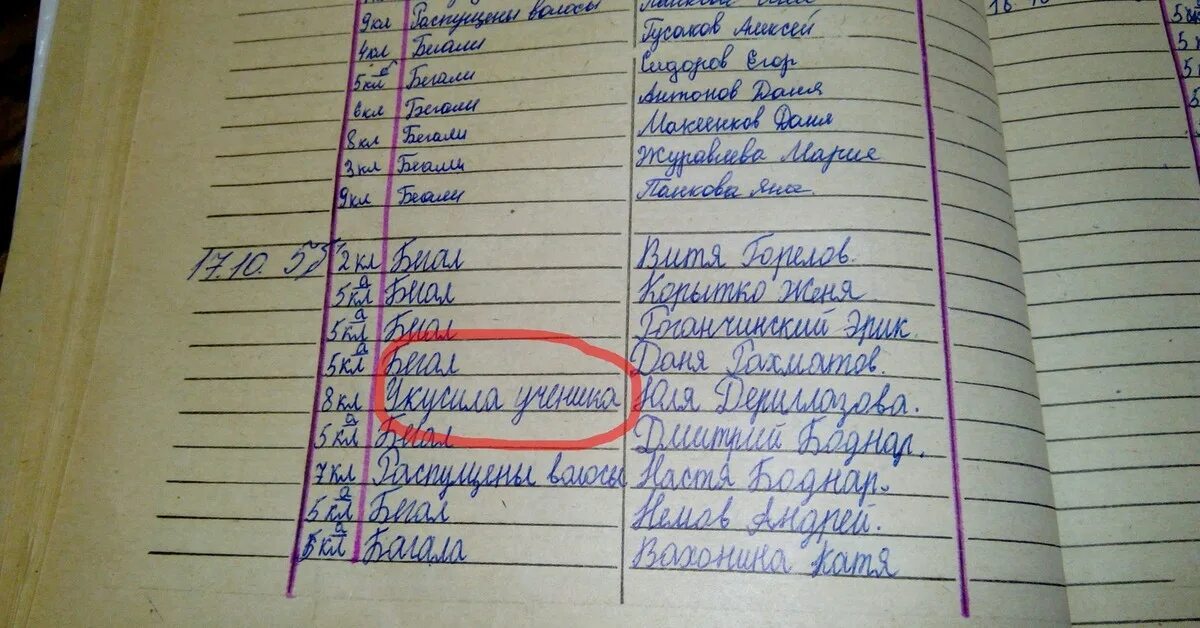 9кл Распущены волосы
4кл Бегали Гусаков Алексей
5кл Бегали Сидоров Егор
6кл Бегали Антонов Даня
8кл Бегали Макеенков Даня
3кл Бегали Журавлева Мария
9кл Бегали Панкова Яна.
17.10. 2кл Бегал Витя Горелов.
5кл а Бегал Корытко Женя
5кл а Бегал Гоганчинский Эрик.
5кл а Бегал Даня Рахматов.
8кл Укусила ученика Юля Дериглазова.
5кл а Бегал Дмитрий Боднар.
7кл Распущены волосы Настя Боднар.
5кл а Бегал Немов Андрей.
5кл а Багала Вахонина Катя